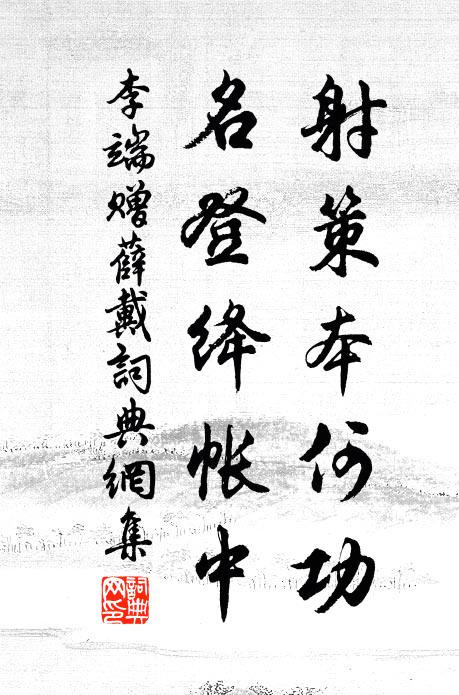 射策本何功
名登绛帐中
李端赠薛戴詞典網集
詞典網印